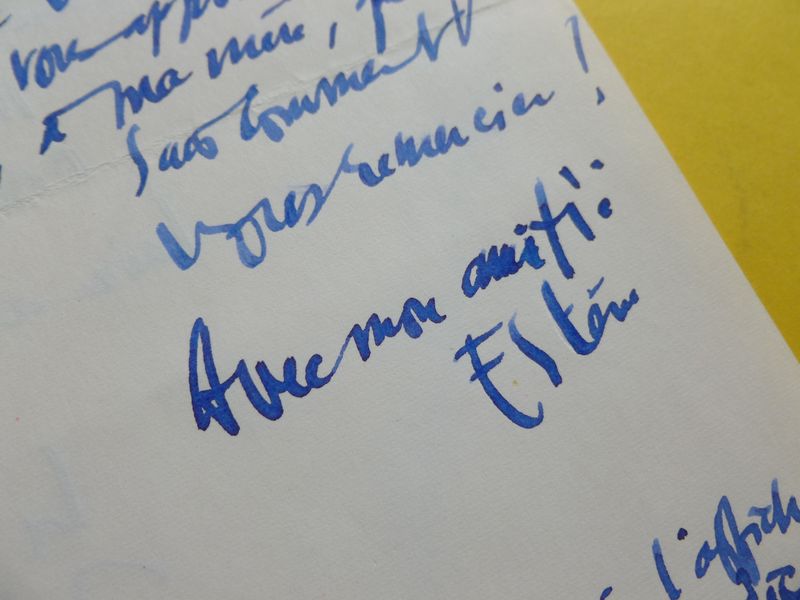 vous
à ma mère,
sais comment
vous remercier !
Avec mon amitié
Estève
l'affich